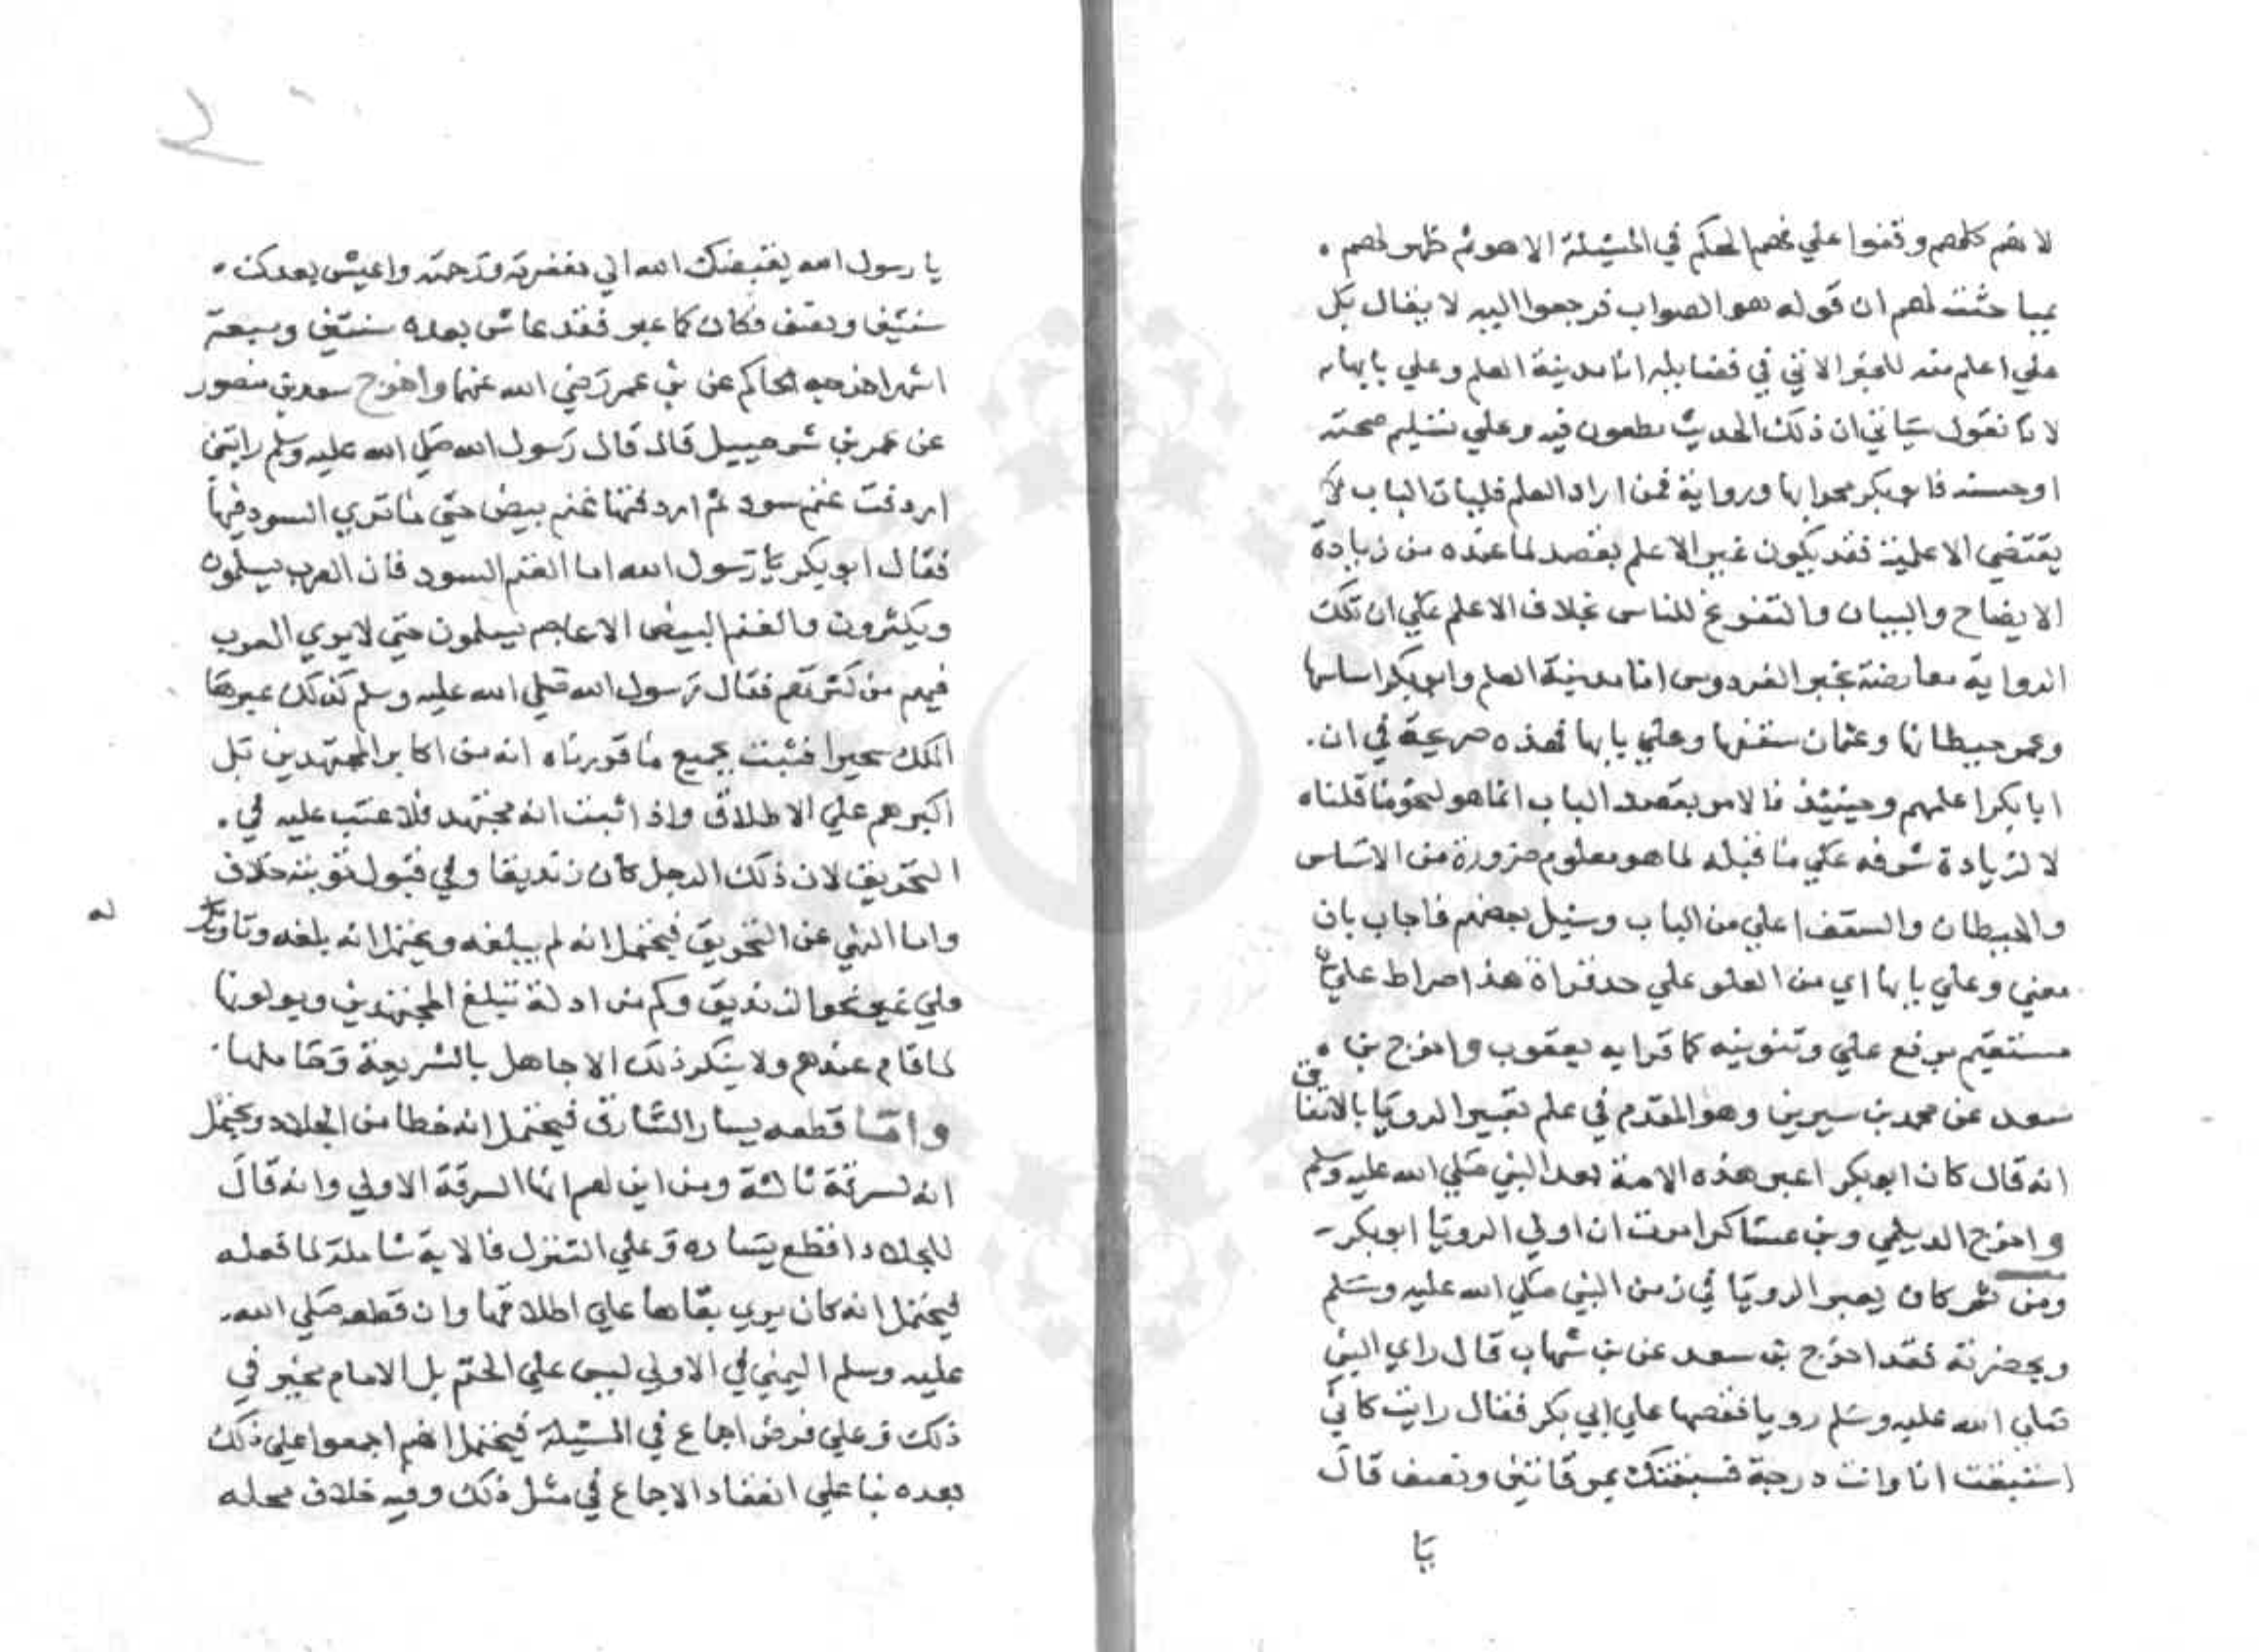 لانهم كلهم وقفوا علي فهم الحكم في المسئلة الا هو ثم ظهر لهم
بمباحثته لهم ان قوله هو الصواب فرجعوا اليه لا يقال بل
علي اعلم منه للخبر الاتي في فضايله انا مدينة العلم وعلي بابها
لانا نقول سياتي ان ذلك الحديث مطعون فيه وعلي تسليم صحته
او حسنه فابوبكر محرابها ورواية فمن اراد العلم فليات الباب لا
يقتضي الاعلمية فقد يكون غير الاعلم يقصد لما عنده من زيادة
الايضاح والبيان والتفرغ للناس بخلاف الاعلم علي ان تلك
الرواية معارضة بخبر الفردوس انا مدينة العلم وابوبكر اساسها
وعمر حيطانها وعثمان سقفها وعلي بابها فهذه صريحة في ان
ابابكر اعلمهم وحينيذ فالامر بقصد الباب انما هو لنحو ما قلناه
لا لزيادة شرفه علي ما قبله لما هو معلوم ضرورة من الاساس
والحيطان والسقف اعلي من الباب وسئيل بعضهم فاجاب بان
معني وعلي بابها اي من العلو علي حد قراة هذا صراط علي
مستقيم برفع علي وتنوينه كما قرا به يعقوب واخرج بن
سعد عن محمد بن سيرين وهو المقدم في علم تعبير الرويا بالاتفاق
انه قال كان ابوبكر اعبر هذه الامة بعد النبي صلي الله عليه وسلم
واخرج الديلمي وبن عساكر امرت ان اولي الرويا ابوبكر
ومن ثم كان يعبر الرويا في زمن النبي صلي الله عليه وسلم
وبحضرته فقد اخرج بن سعد عن بن شهاب قال راي النبي
صلي الله عليه وسلم رويا فقصها علي ابي بكر فقال رايت كاني
استبقت انا وانت درجة فسبقتك بمرقاتين ونصف قال
يا
يا رسول الله يقبضك الله الي مغفرته ورحمته واعيش بعدك
سنتين ونصف فكان كما عبر فقد عاش بعده سنتين وسبعة
اشهر اخرجه الحاكم عن بن عمر رضي الله عنهما واخرج سعد بن منصور
عن عمر بن شرحبيل قال قال رسول الله صلي الله عليه وسلم رايتني
اردفت غنم سود ثم اردفتها غنم بيض حتي ما تري السود فيها
فقال ابوبكر يا رسول الله اما الغنم السود فان العرب يسلمون
ويكثرون والغنم البيض الاعاجم يسلمون حتي لا يري العرب
فيهم من كثرتهم فقال رسول الله صلي الله عليه وسلم كذلك عبرها
الملك سحيرا فثبت بجميع ما قررناه انه من اكابر المجتهدين بل
اكبرهم علي الاطلاق واذا ثبت انه مجتهد فلا عتب عليه في
التحريق لان ذلك الرجل كان زنديقا وفي قبول توبته خلاف
واما النهي عن التحريق فيحتمل انه لم يبلغه ويحتمل انه بلغه وتاوله
علي غير نحو الزنديق وكم من ادلة تبلغ المجتهدين ويولونها
لما قام عندهم ولا ينكر ذلك الا جاهل بالشريعة وحامليها
واما قطعه يسار السارق فيحتمل انه خطا من الجلاد ويحتمل
انه لسرقة ثالثة ومن اين لهم انها السرقة الاولي وانه قال
للجلاد اقطع يساره وعلي التنزل فالاية شاملة لما فعله
فيحتمل انه كان يري بقاها علي اطلاقها وان قطعه صلي الله
عليه وسلم اليمني في الاولي ليس علي الحتم بل الامام مخير في
ذلك وعلي فرض اجماع في المسئلة فيحتمل انهم اجمعوا علي ذلك
بعده بنا علي انعقاد الاجماع في مثل ذلك وفيه خلاف محله